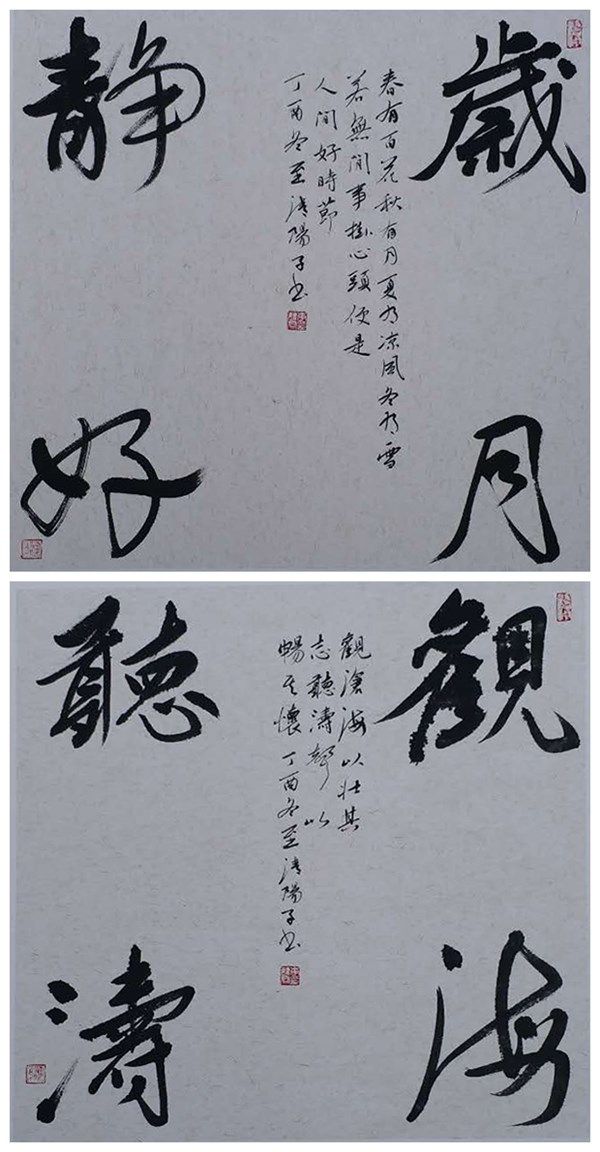 歲月
静好
春有百花秋有月夏有凉風冬有雪
若無閒事掛心頭便是
人間好時節
丁酉冬至清陽子書
觀海
聽濤
觀滄海以壯其
志聽濤聲以
暢其懷丁酉冬至清陽子書